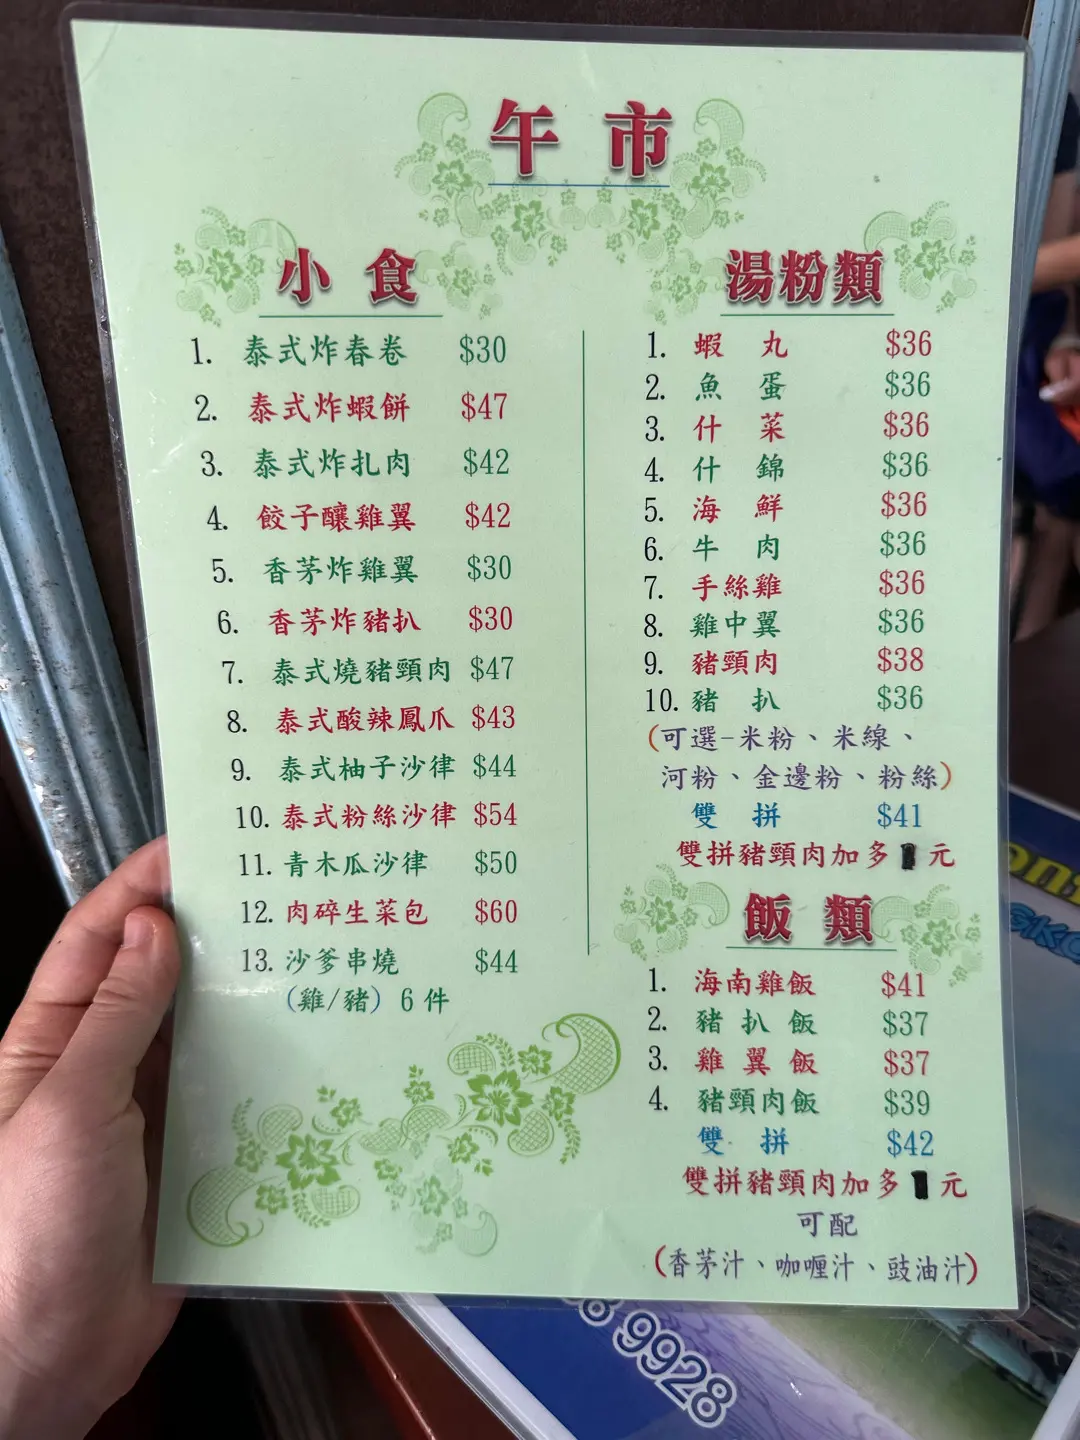 午市
小食
1. 泰式炸春卷 $30
2. 泰式炸蝦餅 $47
3. 泰式炸扎肉 $42
4. 餃子釀雞翼 $42
5. 香茅炸雞翼 $30
6. 香茅炸豬扒 $30
7. 泰式燒豬頸肉 $47
8. 泰式酸辣鳳爪 $43
9. 泰式柚子沙律 $44
10. 泰式粉絲沙律 $54
11. 青木瓜沙律 $50
12. 肉碎生菜包 $60
13. 沙爹串燒 $44
(雞/豬) 6 件
湯粉類
1. 蝦丸 $36
2. 魚蛋 $36
3. 什菜 $36
4. 什錦 $36
5. 海鮮 $36
6. 牛肉 $36
7. 手絲雞 $36
8. 雞中翼 $36
9. 豬頸肉 $38
10. 豬扒 $36
(可選-米粉、米線、
河粉、金邊粉、粉絲)
雙拼 $41
雙拼豬頸肉加多 元
飯類
1. 海南雞飯 $41
2. 豬扒飯 $37
3. 雞翼飯 $37
4. 豬頸肉飯 $39
雙拼 $42
雙拼豬頸肉加多 元
可配
(香茅汁、咖喱汁、豉油汁)
8 9928